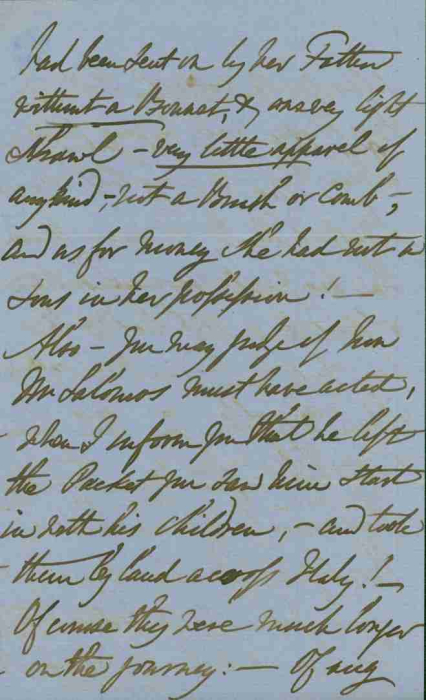 had been sent on by her Father
without a Bonnet, & one very light
Shawl – very little apparel of
any kind, – not a Brush or Comb, –
and as for money she had not a
Sous in her possession! —
Also – you may judge of how
Mr Salomos must have acted,
when I inform you that he left
the Packet you saw him start
in with his children, – and took
them by land across Italy! —
Of course they were much longer
on the journey: — Of any